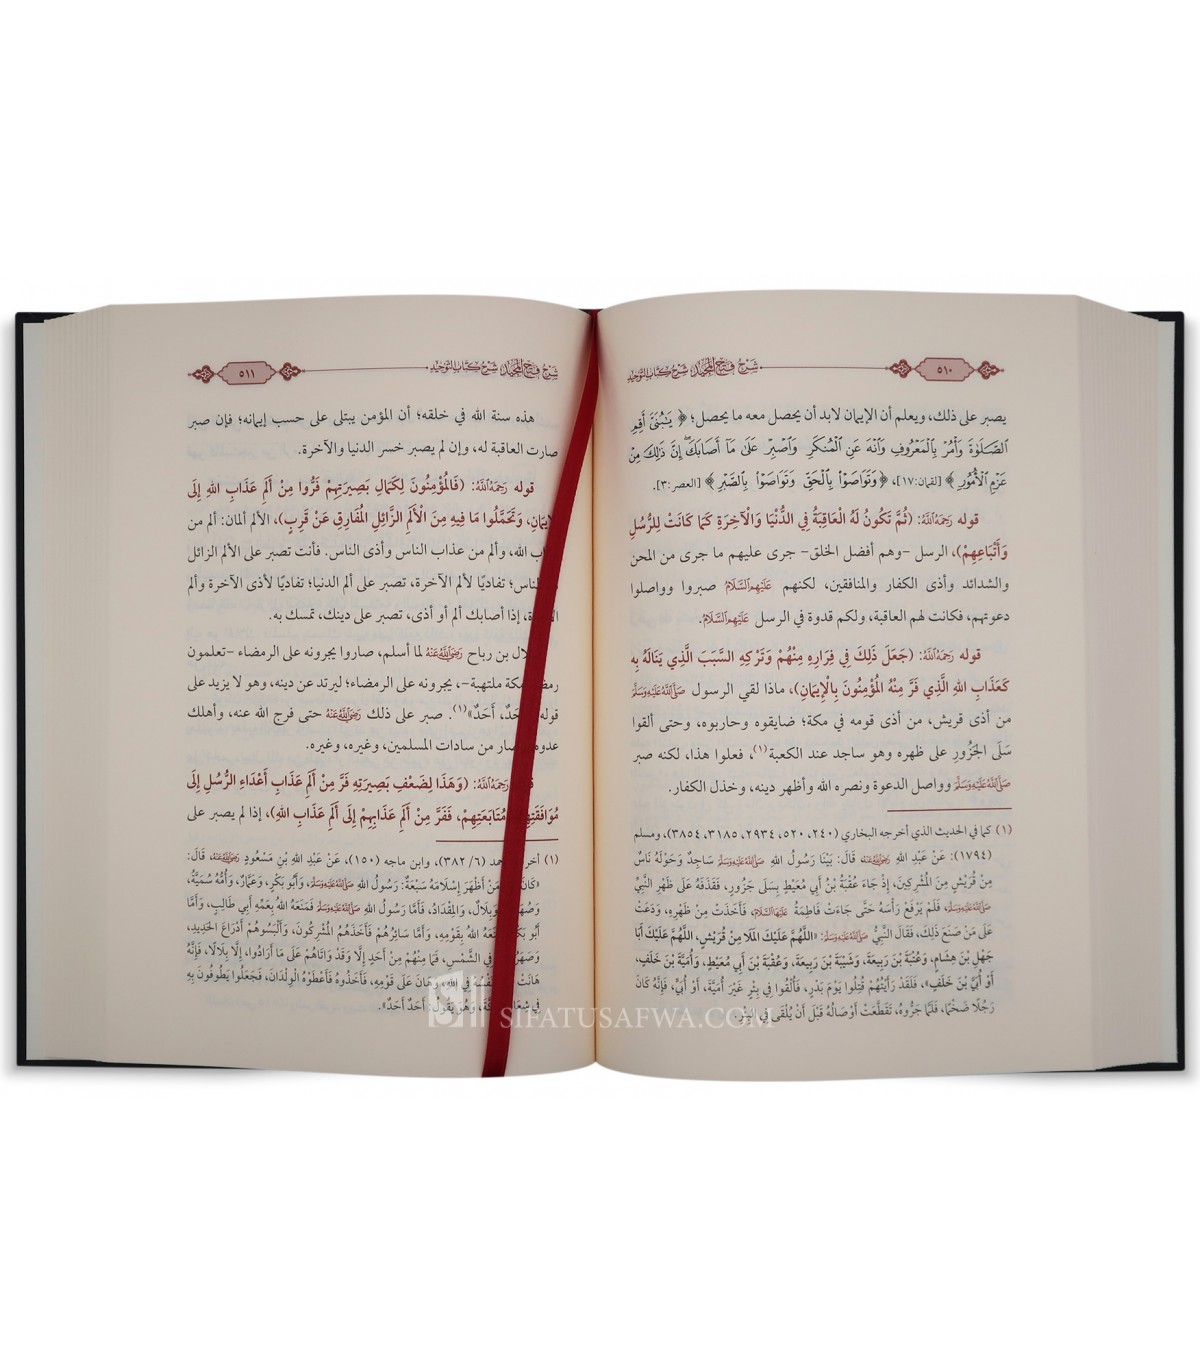 شرح فتح المجيد شرح كتاب التوحيد
٥١٠
يصبر على ذلك، ويعلم أن الإيمان لابد أن يحصل معه ما يحصل؛ ﴿يَٰبُنَيَّ أَقِمِ
ٱلصَّلَوٰةَ وَأۡمُرۡ بِٱلۡمَعۡرُوفِ وَٱنۡهَ عَنِ ٱلۡمُنكَرِ وَٱصۡبِرۡ عَلَىٰ مَآ أَصَابَكَۖ إِنَّ ذَٰلِكَ مِنۡ
عَزۡمِ ٱلۡأُمُورِ﴾ [لقمان:١٧]، ﴿وَتَوَاصَوۡاْ بِٱلۡحَقِّ وَتَوَاصَوۡاْ بِٱلصَّبۡرِ﴾ [العصر:٣].
قوله رَحِمَهُ اللَّهُ: (ثُمَّ تَكُونُ لَهُ الْعَاقِبَةُ فِي الدُّنْيَا وَالْآخِرَةِ كَمَا كَانَتْ لِلرُّسُلِ
وَأَتْبَاعِهِمْ)، الرسل -وهم أفضل الخلق- جرى عليهم ما جرى من المحن
والشدائد وأذى الكفار والمنافقين، لكنهم عَلَيْهِمُ السَّلَامُ صبروا وواصلوا
دعوتهم، فكانت لهم العاقبة، ولكم قدوة في الرسل عَلَيْهِمُ السَّلَامُ.
قوله رَحِمَهُ اللَّهُ: (جَعَلَ ذَلِكَ فِي فِرَارِهِ مِنْهُمْ وَتَرْكِهِ السَّبَبَ الَّذِي يَنَالُهُ بِهِ
كَعَذَابِ اللهِ الَّذِي فَرَّ مِنْهُ الْمُؤْمِنُونَ بِالْإِيمَانِ)، ماذا لقي الرسول صَلَّى اللَّهُ عَلَيْهِ وَسَلَّمَ
من أذى قريش، من أذى قومه في مكة؛ ضايقوه وحاربوه، وحتى ألقوا
سَلَى الجَزُورِ على ظهره وهو ساجد عند الكعبة(١)، فعلوا هذا، لكنه صبر
صَلَّى اللَّهُ عَلَيْهِ وَسَلَّمَ وواصل الدعوة ونصره الله وأظهر دينه، وخذل الكفار.
(١) كما في الحديث الذي أخرجه البخاري (٢٤٠، ٥٢٠، ٢٩٣٤، ٣١٨٥، ٣٨٥٤)، ومسلم
(١٧٩٤): عَنْ عَبْدِ اللهِ رَضِيَ اللَّهُ عَنْهُ، قَالَ: بَيْنَا رَسُولُ اللهِ صَلَّى اللَّهُ عَلَيْهِ وَسَلَّمَ سَاجِدٌ وَحَوْلَهُ نَاسٌ
مِنْ قُرَيْشٍ مِنَ الْمُشْرِكِينَ، إِذْ جَاءَ عُقْبَةُ بْنُ أَبِي مُعَيْطٍ بِسَلَى جَزُورٍ، فَقَذَفَهُ عَلَى ظَهْرِ النَّبِيِّ
صَلَّى اللَّهُ عَلَيْهِ وَسَلَّمَ، فَلَمْ يَرْفَعْ رَأْسَهُ حَتَّى جَاءَتْ فَاطِمَةُ عَلَيْهَا السَّلَامُ، فَأَخَذَتْ مِنْ ظَهْرِهِ، وَدَعَتْ
عَلَى مَنْ صَنَعَ ذَلِكَ، فَقَالَ النَّبِيُّ صَلَّى اللَّهُ عَلَيْهِ وَسَلَّمَ: «اللَّهُمَّ عَلَيْكَ الْمَلَأَ مِنْ قُرَيْشٍ، اللَّهُمَّ عَلَيْكَ أَبَا
جَهْلِ بْنَ هِشَامٍ، وَعُتْبَةَ بْنَ رَبِيعَةَ، وَشَيْبَةَ بْنَ رَبِيعَةَ، وَعُقْبَةَ بْنَ أَبِي مُعَيْطٍ، وَأُمَيَّةَ بْنَ خَلَفٍ،
أَوْ أُبَيَّ بْنَ خَلَفٍ»، فَلَقَدْ رَأَيْتُهُمْ قُتِلُوا يَوْمَ بَدْرٍ، فَأُلْقُوا فِي بِئْرٍ غَيْرَ أُمَيَّةَ، أَوْ أُبَيٍّ، فَإِنَّهُ كَانَ
رَجُلًا ضَخْمًا، فَلَمَّا جَرُّوهُ، تَقَطَّعَتْ أَوْصَالُهُ قَبْلَ أَنْ يُلْقَى فِي الْبِئْرِ.
شرح فتح المجيد شرح كتاب التوحيد
٥١١
هذه سنة الله في خلقه؛ أن المؤمن يبتلى على حسب إيمانه؛ فإن صبر
صارت العاقبة له، وإن لم يصبر خسر الدنيا والآخرة.
قوله رَحِمَهُ اللَّهُ: (فَالْمُؤْمِنُونَ لِكَمَالِ بَصِيرَتِهِمْ فَرُّوا مِنْ أَلَمِ عَذَابِ اللهِ إِلَى
الْإِيمَانِ، وَتَحَمَّلُوا مَا فِيهِ مِنَ الْأَلَمِ الزَّائِلِ الْمُفَارِقِ عَنْ قَرِبٍ)، الألم ألمان: ألم من
عذاب الله، وألم من عذاب الناس وأذى الناس. فأنت تصبر على الألم الزائل
الناس؛ تفاديًا لألم الآخرة، تصبر على ألم الدنيا؛ تفاديًا لأذى الآخرة وألم
الآخرة، إذا أصابك ألم أو أذى، تصبر على دينك، تمسك به.
بلال بن رباح رَضِيَ اللَّهُ عَنْهُ لما أسلم، صاروا يجرونه على الرمضاء -تعلمون
رمضاء مكة ملتهبة-، يجرونه على الرمضاء؛ ليرتد عن دينه، وهو لا يزيد على
قوله: «أَحَدٌ، أَحَدٌ»(١). صبر على ذلك رَضِيَ اللَّهُ عَنْهُ حتى فرج الله عنه، وأهلك
عدوه، وصار من سادات المسلمين، وغيره، وغيره.
قوله رَحِمَهُ اللَّهُ: (وَهَذَا لِضَعْفِ بَصِيرَتِهِ فَرَّ مِنْ أَلَمِ عَذَابِ أَعْدَاءِ الرُّسُلِ إِلَى
مُوَافَقَتِهِمْ وَمُتَابَعَتِهِمْ، فَفَرَّ مِنْ أَلَمِ عَذَابِهِمْ إِلَى أَلَمِ عَذَابِ اللهِ)، إذا لم يصبر على
(١) أخرجه أحمد (٦/ ٣٨٢)، وابن ماجه (١٥٠)، عَنْ عَبْدِ اللهِ بْنِ مَسْعُودٍ رَضِيَ اللَّهُ عَنْهُ، قَالَ:
«كَانَ أَوَّلَ مَنْ أَظْهَرَ إِسْلَامَهُ سَبْعَةٌ: رَسُولُ اللهِ صَلَّى اللَّهُ عَلَيْهِ وَسَلَّمَ، وَأَبُو بَكْرٍ، وَعَمَّارٌ، وَأُمُّهُ سُمَيَّةُ،
وَصُهَيْبٌ، وَبِلَالٌ، وَالْمِقْدَادُ، فَأَمَّا رَسُولُ اللهِ صَلَّى اللَّهُ عَلَيْهِ وَسَلَّمَ فَمَنَعَهُ اللهُ بِعَمِّهِ أَبِي طَالِبٍ، وَأَمَّا
أَبُو بَكْرٍ فَمَنَعَهُ اللهُ بِقَوْمِهِ، وَأَمَّا سَائِرُهُمْ فَأَخَذَهُمُ الْمُشْرِكُونَ، وَأَلْبَسُوهُمْ أَدْرَاعَ الْحَدِيدِ،
وَصَهَرُوهُمْ فِي الشَّمْسِ، فَمَا مِنْهُمْ مِنْ أَحَدٍ إِلَّا وَقَدْ وَاتَاهُمْ عَلَى مَا أَرَادُوا، إِلَّا بِلَالًا، فَإِنَّهُ
هَانَتْ عَلَيْهِ نَفْسُهُ فِي اللهِ، وَهَانَ عَلَى قَوْمِهِ، فَأَخَذُوهُ فَأَعْطَوْهُ الْوِلْدَانَ، فَجَعَلُوا يَطُوفُونَ بِهِ
فِي شِعَابِ مَكَّةَ، وَهُوَ يَقُولُ: أَحَدٌ أَحَدٌ».
SIFATUSAFWA.COM